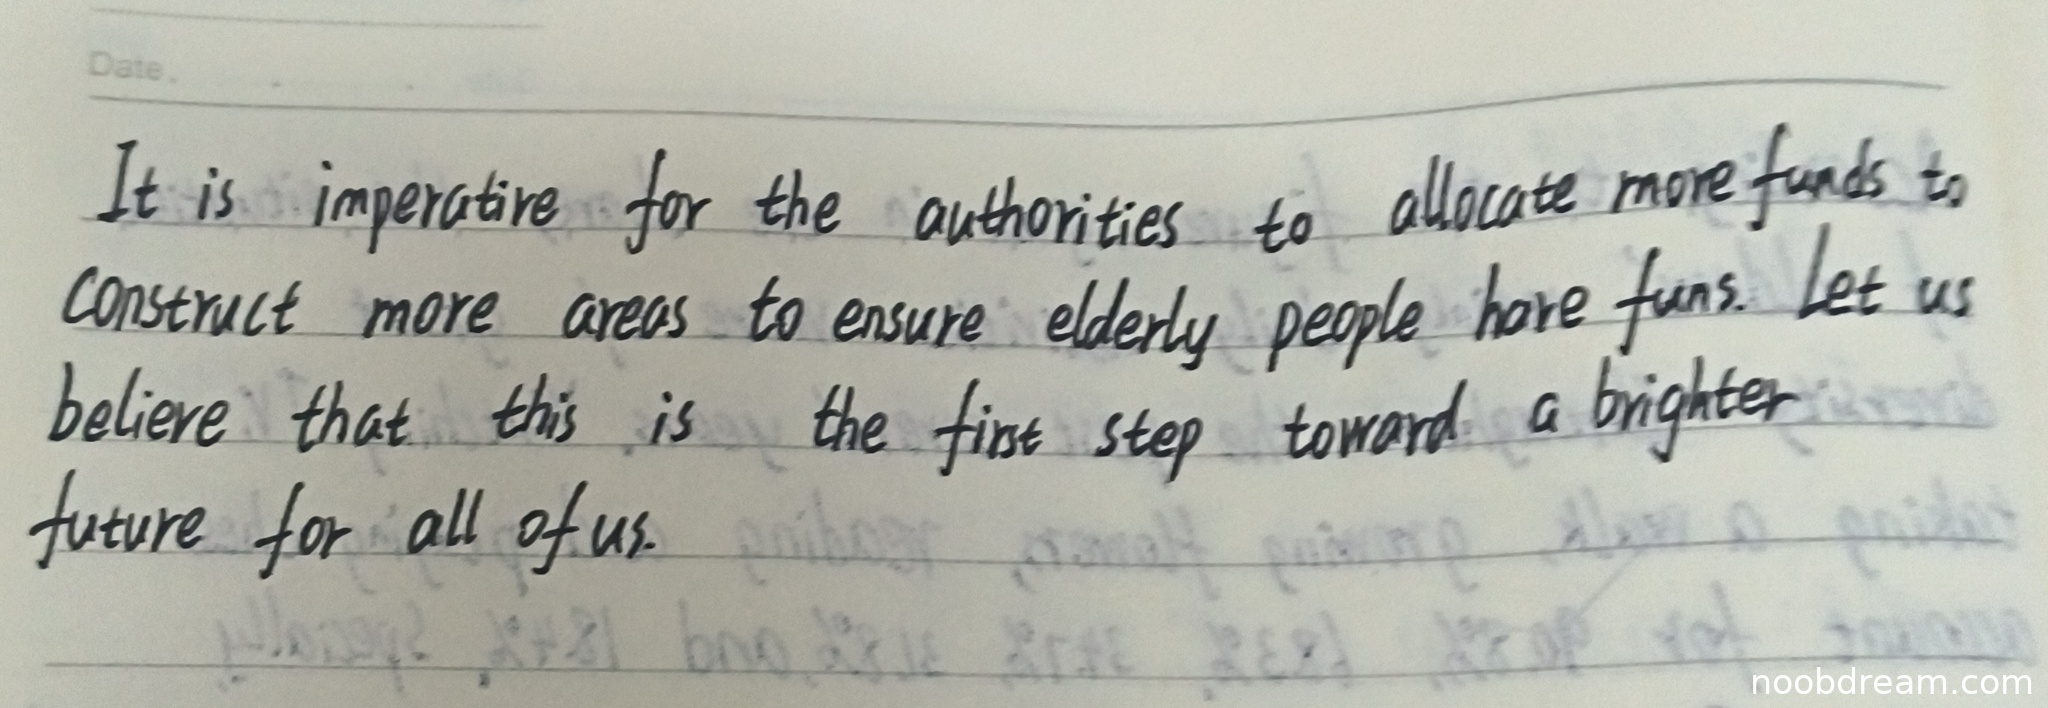 Date.
It is imperative for the authorities to allocate more funds to
construct more areas to ensure elderly people have funs. Let us
believe that this is the first step toward a brighter
future for all of us.
noobdream.com